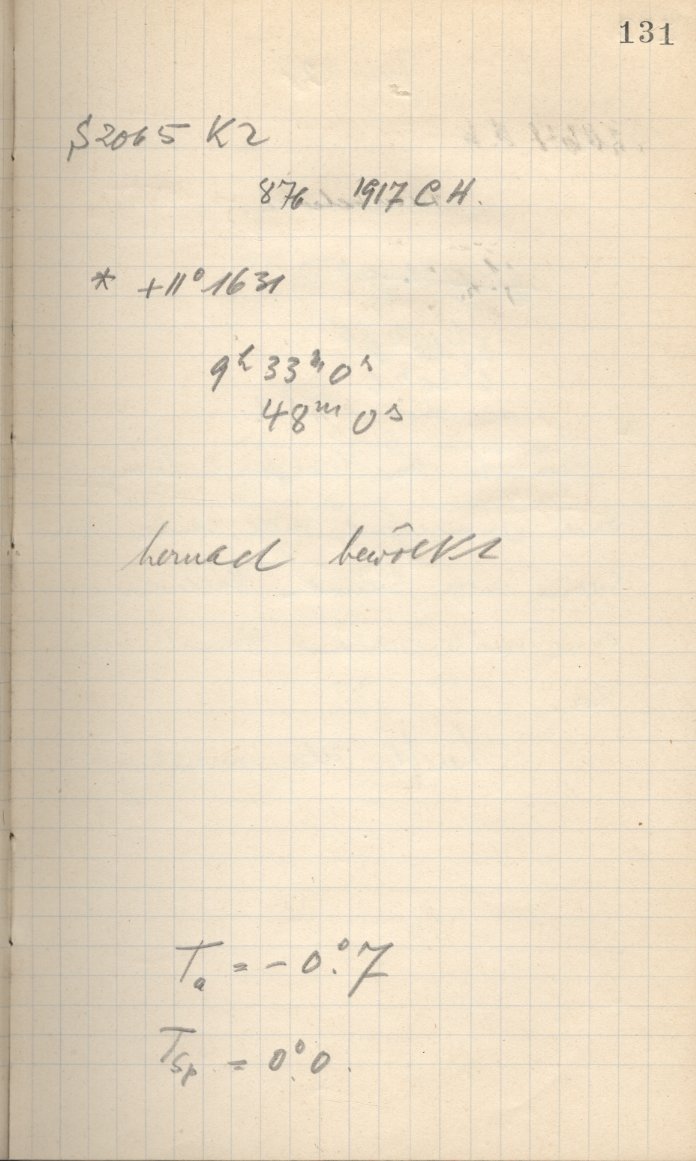 131
S2065 K2
876 1917 CH.
* +11° 1631
9h 33m 0s
48m 0s
hernach bewölkt
Ta = -0°.7
Tsp = 0°.0.